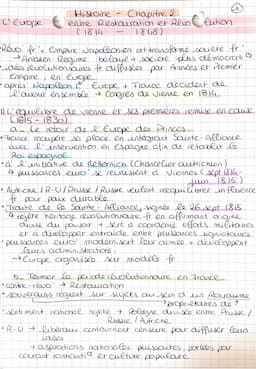 Histoire - Chapitre 2
L'Europe entre Restauration et Révolution
(1814 - 1848)
Révo fr + Empire Napoléonien ont transformé société fr
→ Ancien Régime balayé + société plus démocrat
- idées révolutionnaires fr diffusées par Armées et 1er
Empire, en Europe
- après Napoléon 1er : Europe + France décident de
l'avenir ensemble → Congrès de Vienne en 1814
I) L'équilibre de Vienne et ses premières remise en cause
(1815 - 1830)
a - Le retour de l'Europe des Princes
- France récupère sa place en intégrant Sainte-Alliance
avec l'intervention en Espagne afin de rétablir le
Roi espagnol
- à l'initiative de Metternich (Chancelier autrichien)
4 puissances euro se réunissent à Viennes (sept 1814 -
juin 1815)
- Autriche / R-U / Prusse / Russie veulent rééquilibrer influence
fr pour paix durable
- Traité de la Sainte-Alliance, signée le 26 sept 1815
↳ rejète héritage révolutionnaire fr en affirmant origine
divine du pouvoir + sert à coordonner efforts militaires
et à développer entraide entre puissances signataires
- puissances euro modernisent leur armée + développent
leurs administrations
→ Europe organisée sur modèle fr
b - Fermer la période révolutionnaire en France
- contre-révo → Restauration
- souverains règnent sur sujets au sein d'un Royaume
→ propriétaires de
- sentiment national rejeté → Pologne divisée entre Prusse /
Russie / Autriche
- R-U → libéraux contournent censure pour diffuser leurs
idées
+ aspirations nationales puissantes, portées par
courant romantiq et culture populaire